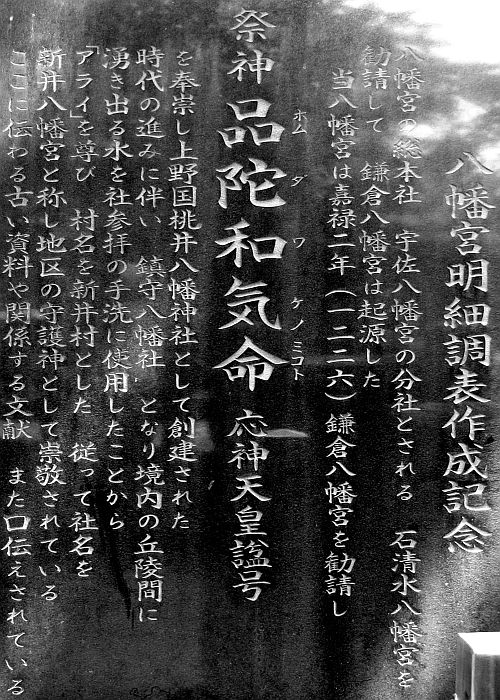 八幡宮明細調表作成記念
八幡宮の総本社 宇佐八幡宮の分社とされる 石清水八幡宮を
勧請して 鎌倉八幡宮は起源した
当八幡宮は嘉禄二年(一二二六)鎌倉八幡宮を勧請し
祭神 品陀和気命 応神天皇諡号
ホムダワケノミコト
を奉崇し上野国桃井八幡神社として創建された
時代の進みに伴い 鎮守八幡社 となり境内の丘陵間に
湧き出る水を社参拝の手洗に使用したことから
「アライ」を尊び 村名を新井村とした 従って社名を
新井八幡宮と称し地区の守護神として崇敬されている
ここに伝わる古い資料や関係する文献 また口伝えされている